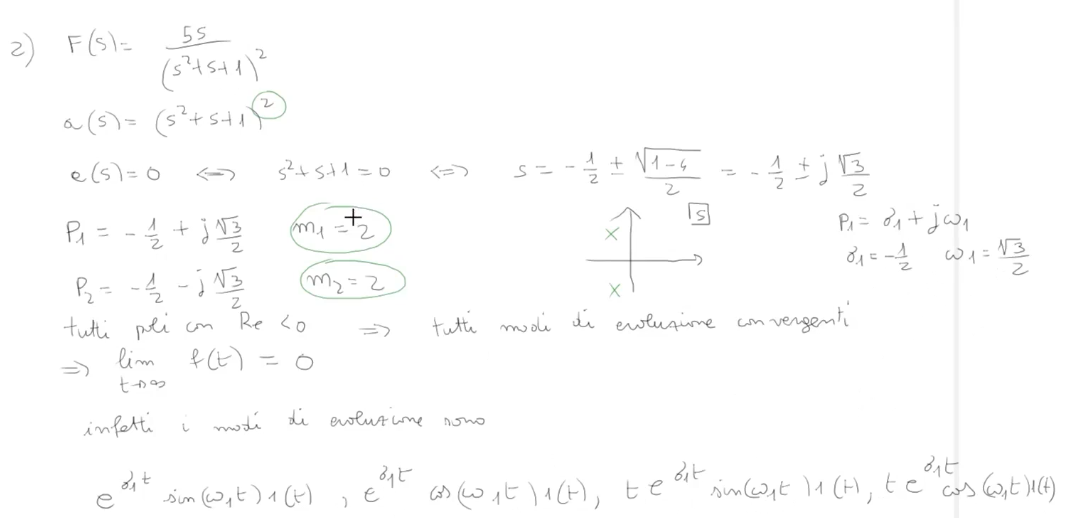 2) F(s)= 5s / (s²+s+1)²
a(s)= (s²+s+1)²
e(s)=0 <=> s²+s+1=0 <=> s = -1/2 ± √(1-4)/2 = -1/2 ± j √3/2
P₁ = -1/2 + j√3/2 m₁ = 2 [s] P₁= σ₁ + jω₁
P₂ = -1/2 - j√3/2 m₂ = 2 σ₁ = -1/2 ω₁ = √3/2
tutti poli con Re <0 => tutti modi di evoluzione convergenti
=> lim t→∞ f(t) = 0
infatti i modi di evoluzione sono
e^σ₁t sin(ω₁t)1(t), e^σ₁t cos(ω₁t)1(t), t e^σ₁t sin(ω₁t)1(t), t e^σ₁t cos(ω₁t)1(t)